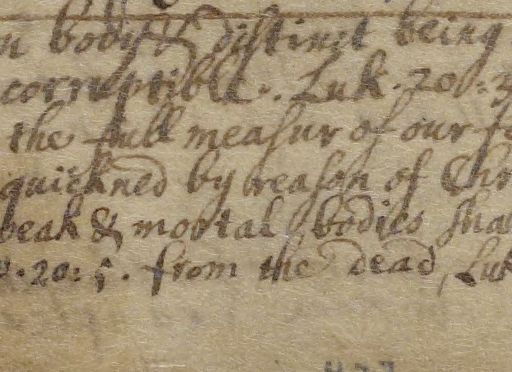 n body & distinct being
corruptible. Luk. 20:3
the full measur of our
quickned by reason of Chr
beak & mortal bodies sha
20:5. from the dead, Luk